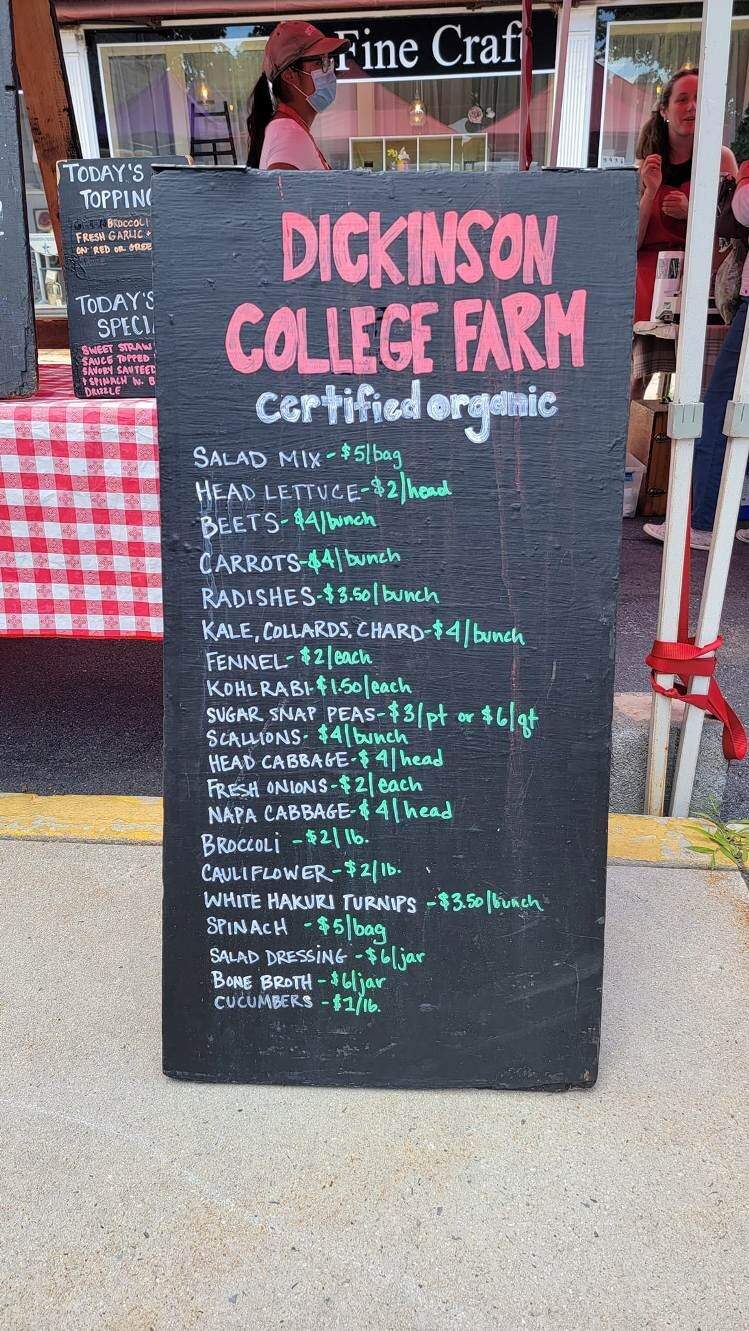 Fine Craft
TODAY'S
TOPPIN
BROCCOLI
FRESH GARLIC +
ON RED OR GREE
TODAY'S
SPECI
SWEET STRAW
SAUCE TOPPED
SAVORY SAUTEED
+ SPINACH W. B
DRIZZLE
DICKINSON
COLLEGE FARM
certified organic
SALAD MIX - $5/bag
HEAD LETTUCE - $2/head
BEETS - $4/bunch
CARROTS - $4/bunch
RADISHES - $3.50/bunch
KALE, COLLARDS, CHARD - $4/bunch
FENNEL - $2/each
KOHLRABI - $1.50/each
SUGAR SNAP PEAS - $3/pt or $6/qt
SCALLIONS - $4/bunch
HEAD CABBAGE - $4/head
FRESH ONIONS - $2/each
NAPA CABBAGE - $4/head
BROCCOLI - $2/lb.
CAULIFLOWER - $2/lb.
WHITE HAKURI TURNIPS - $3.50/bunch
SPINACH - $5/bag
SALAD DRESSING - $6/jar
BONE BROTH - $6/jar
CUCUMBERS - $1/lb.